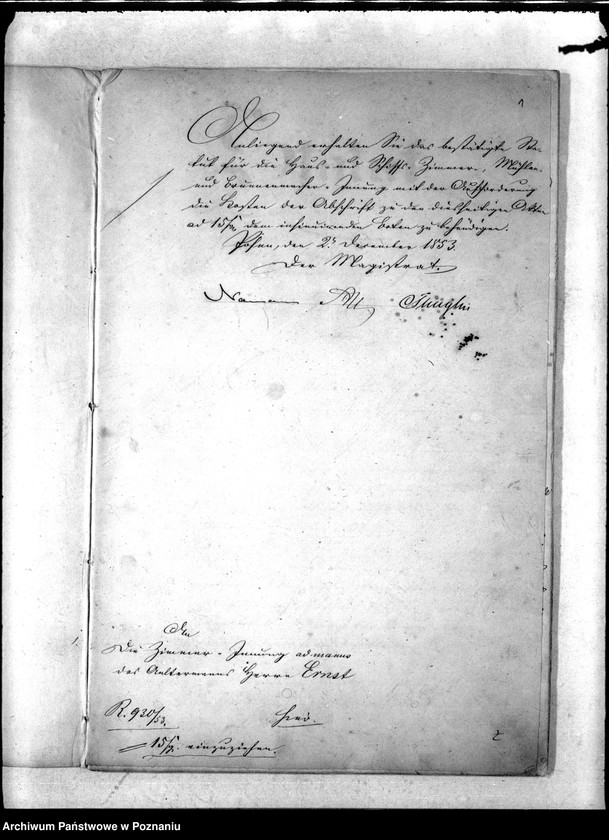 1
Anliegend erhalten Sie das bestätigte Sta-
tut für die Haus- und Schiffs-Zimmer-, Mühlen-
und Brunnenmacher-Innung mit der Aufforderung
die Kosten der Abschrift zu den diesseitigen Akten
ad 15 Sg. dem insinuirenden Boten zu behändigen.
Posen, den 2t. December 1853.
Der Magistrat.
Naumann
An
Die Zimmer-Innung ad manus
des Aeltermanns Herrn Ernst
R. 920/53. hier.
15 Sg. einzuziehen.
2
Archiwum Państwowe w Poznaniu